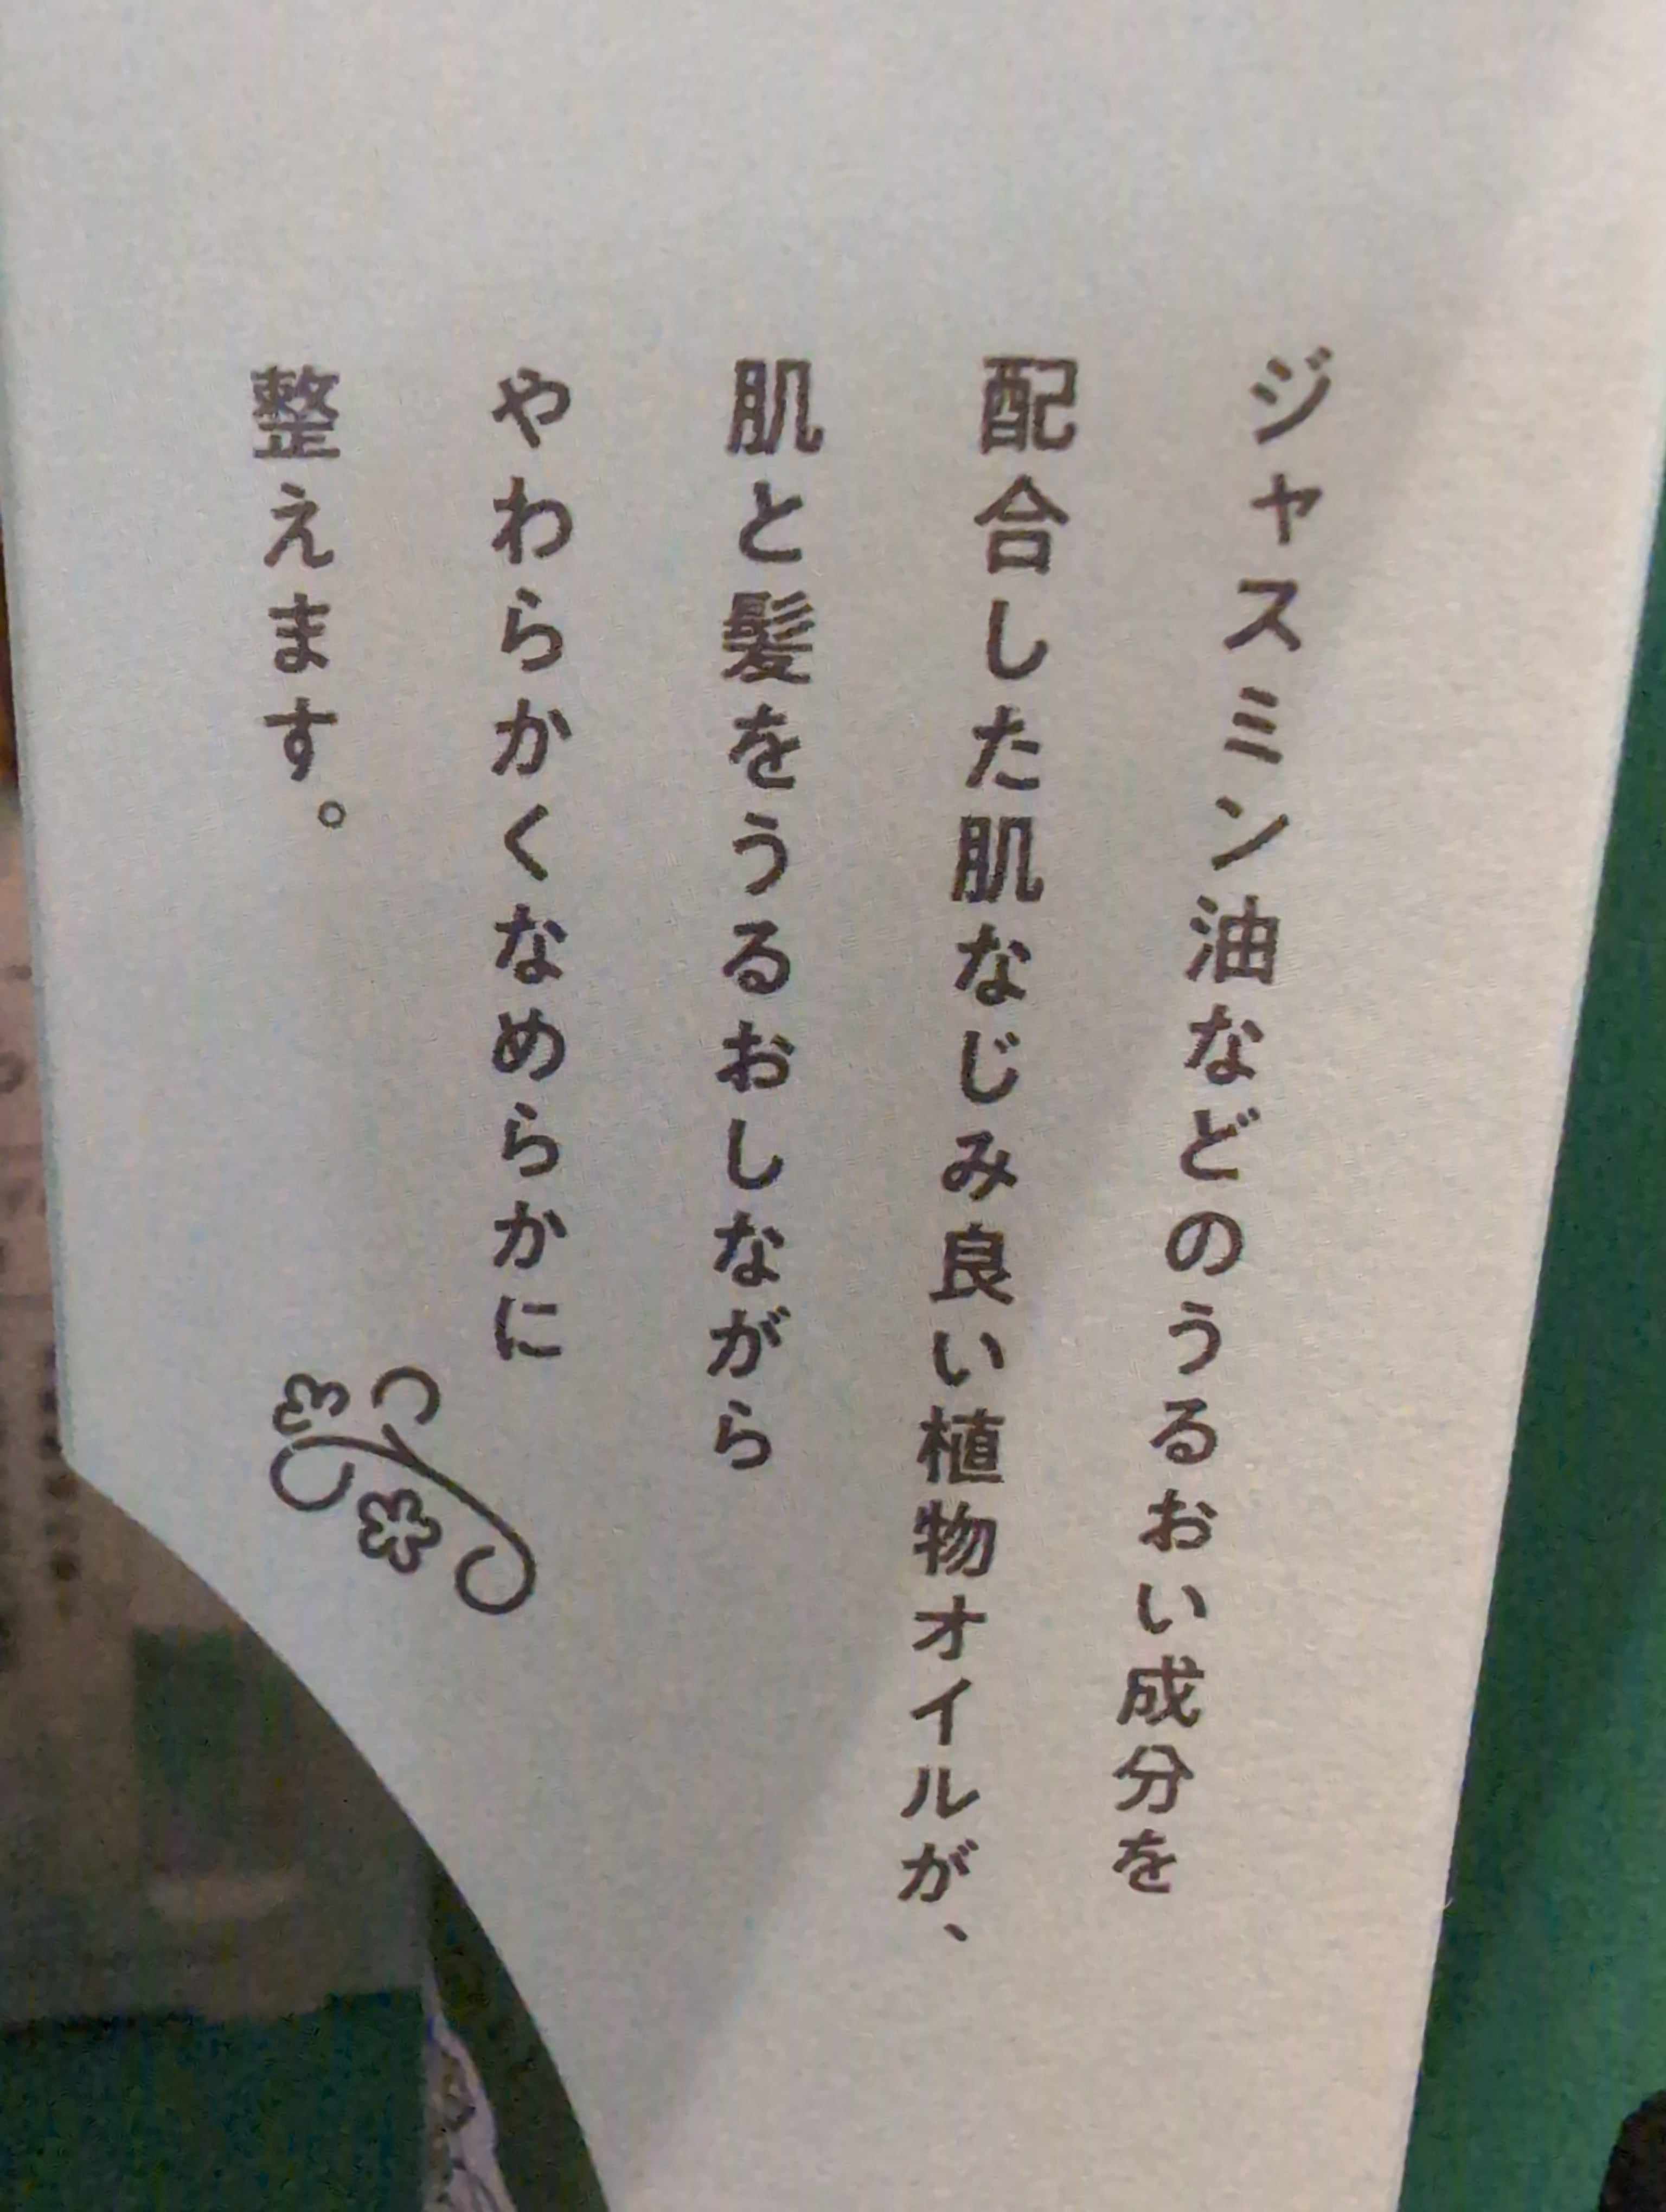 ジャスミン油などのうるおい成分を
配合した肌なじみ良い植物オイルが、
肌と髪をうるおしながら
やわらかくなめらかに
整えます。